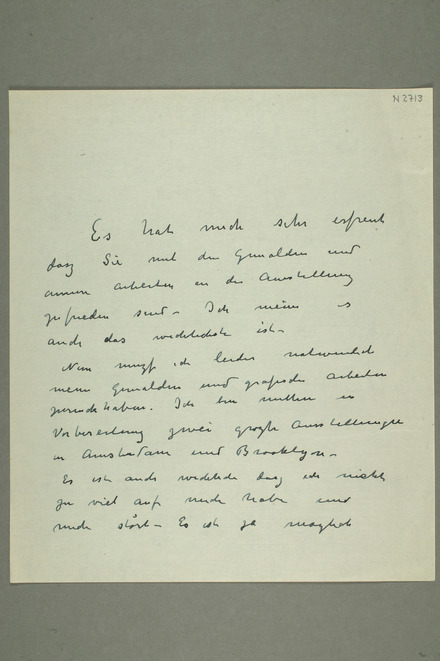 N 2713
Es hat mich sehr erfreut
dasz Sie mit den Gemalden und
arbeiten in der Ausstellung
zufrieden sind - Ich meine es
auch das wichtichste ist -
Nun muszf ich leider notwendich
meine Gemalden und grafische arbeiten
zuruck haben. Ich bin mitten in
Vorbereitung zwei groszte Ausstellungen
in Amsterdam und Brooklyn -
Es ist auch wichtich dasz ich nichts
zu viel auf mich habe und
mich stört - Es ist ja